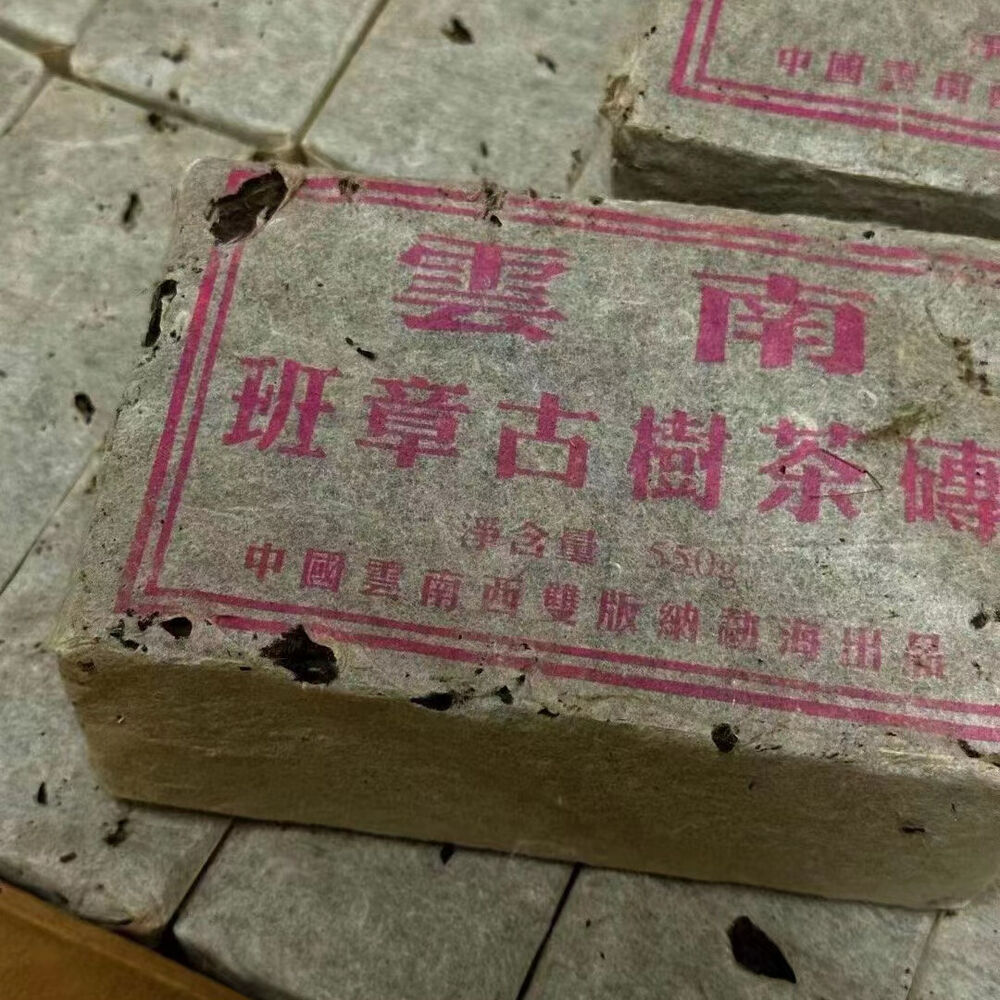 中國雲南
雲南
班章古樹茶磚
淨含量 550g
中國雲南西雙版納勐海出品